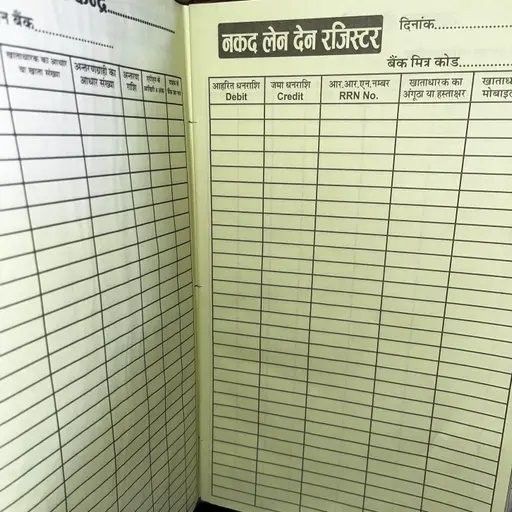 न बैंक..................
खाताधारक का आधार
या खाता संख्या
अन्तरणग्राही का
आधार संख्या
अन्तरण
राशि
नकद लेन देन रजिस्टर
दिनांक..................
बैंक मित्र कोड..............
आहरित धनराशि
Debit
जमा धनराशि
Credit
आर.आर.एन.नम्बर
RRN No.
खाताधारक का
अंगूठा या हस्ताक्षर
खाताध
मोबाइल